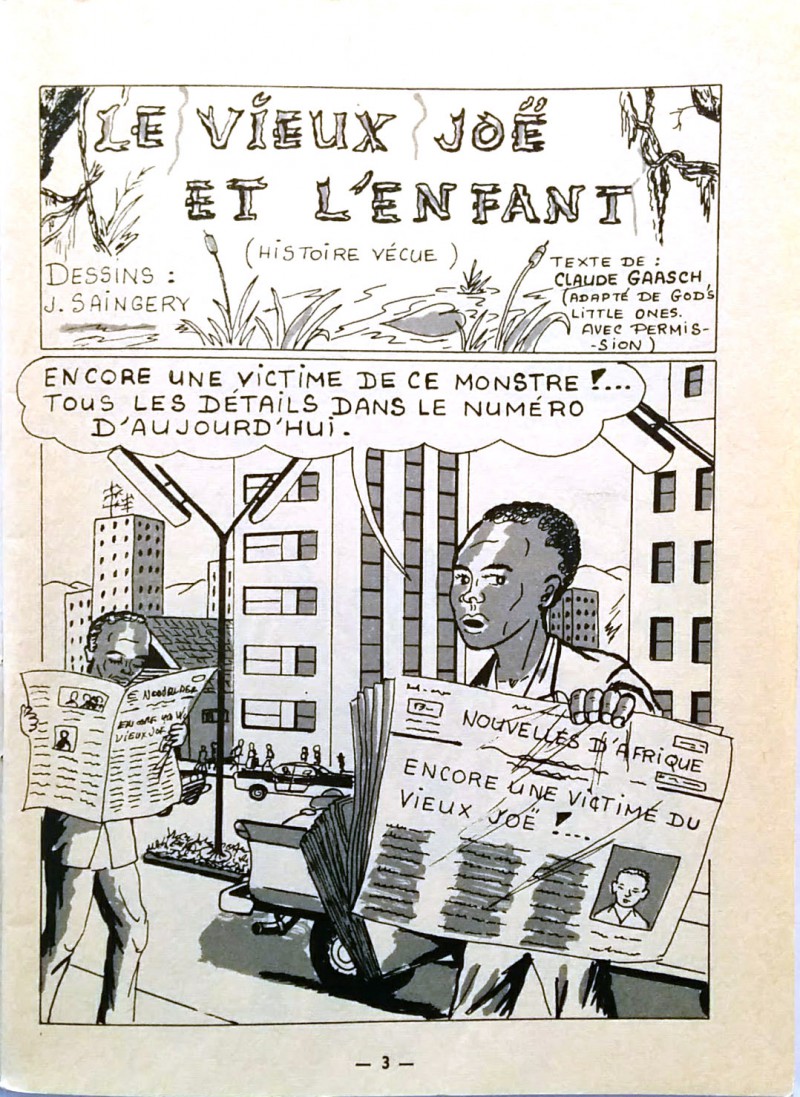 LE VIEUX JOË
ET L'ENFANT
(HISTOIRE VÉCUE)
DESSINS :
J. SAINGERY
TEXTE DE :
CLAUDE GAASCH,
(ADAPTÉ DE GOD'S
LITTLE ONES.
AVEC PERMIS-
-SION)
ENCORE UNE VICTIME DE CE MONSTRE !...
TOUS LES DÉTAILS DANS LE NUMÉRO
D'AUJOURD'HUI.
VIEUX JOË
NOUVELLES D'AFRIQUE
ENCORE UNE VICTIME DU
VIEUX JOË !....
— 3 —